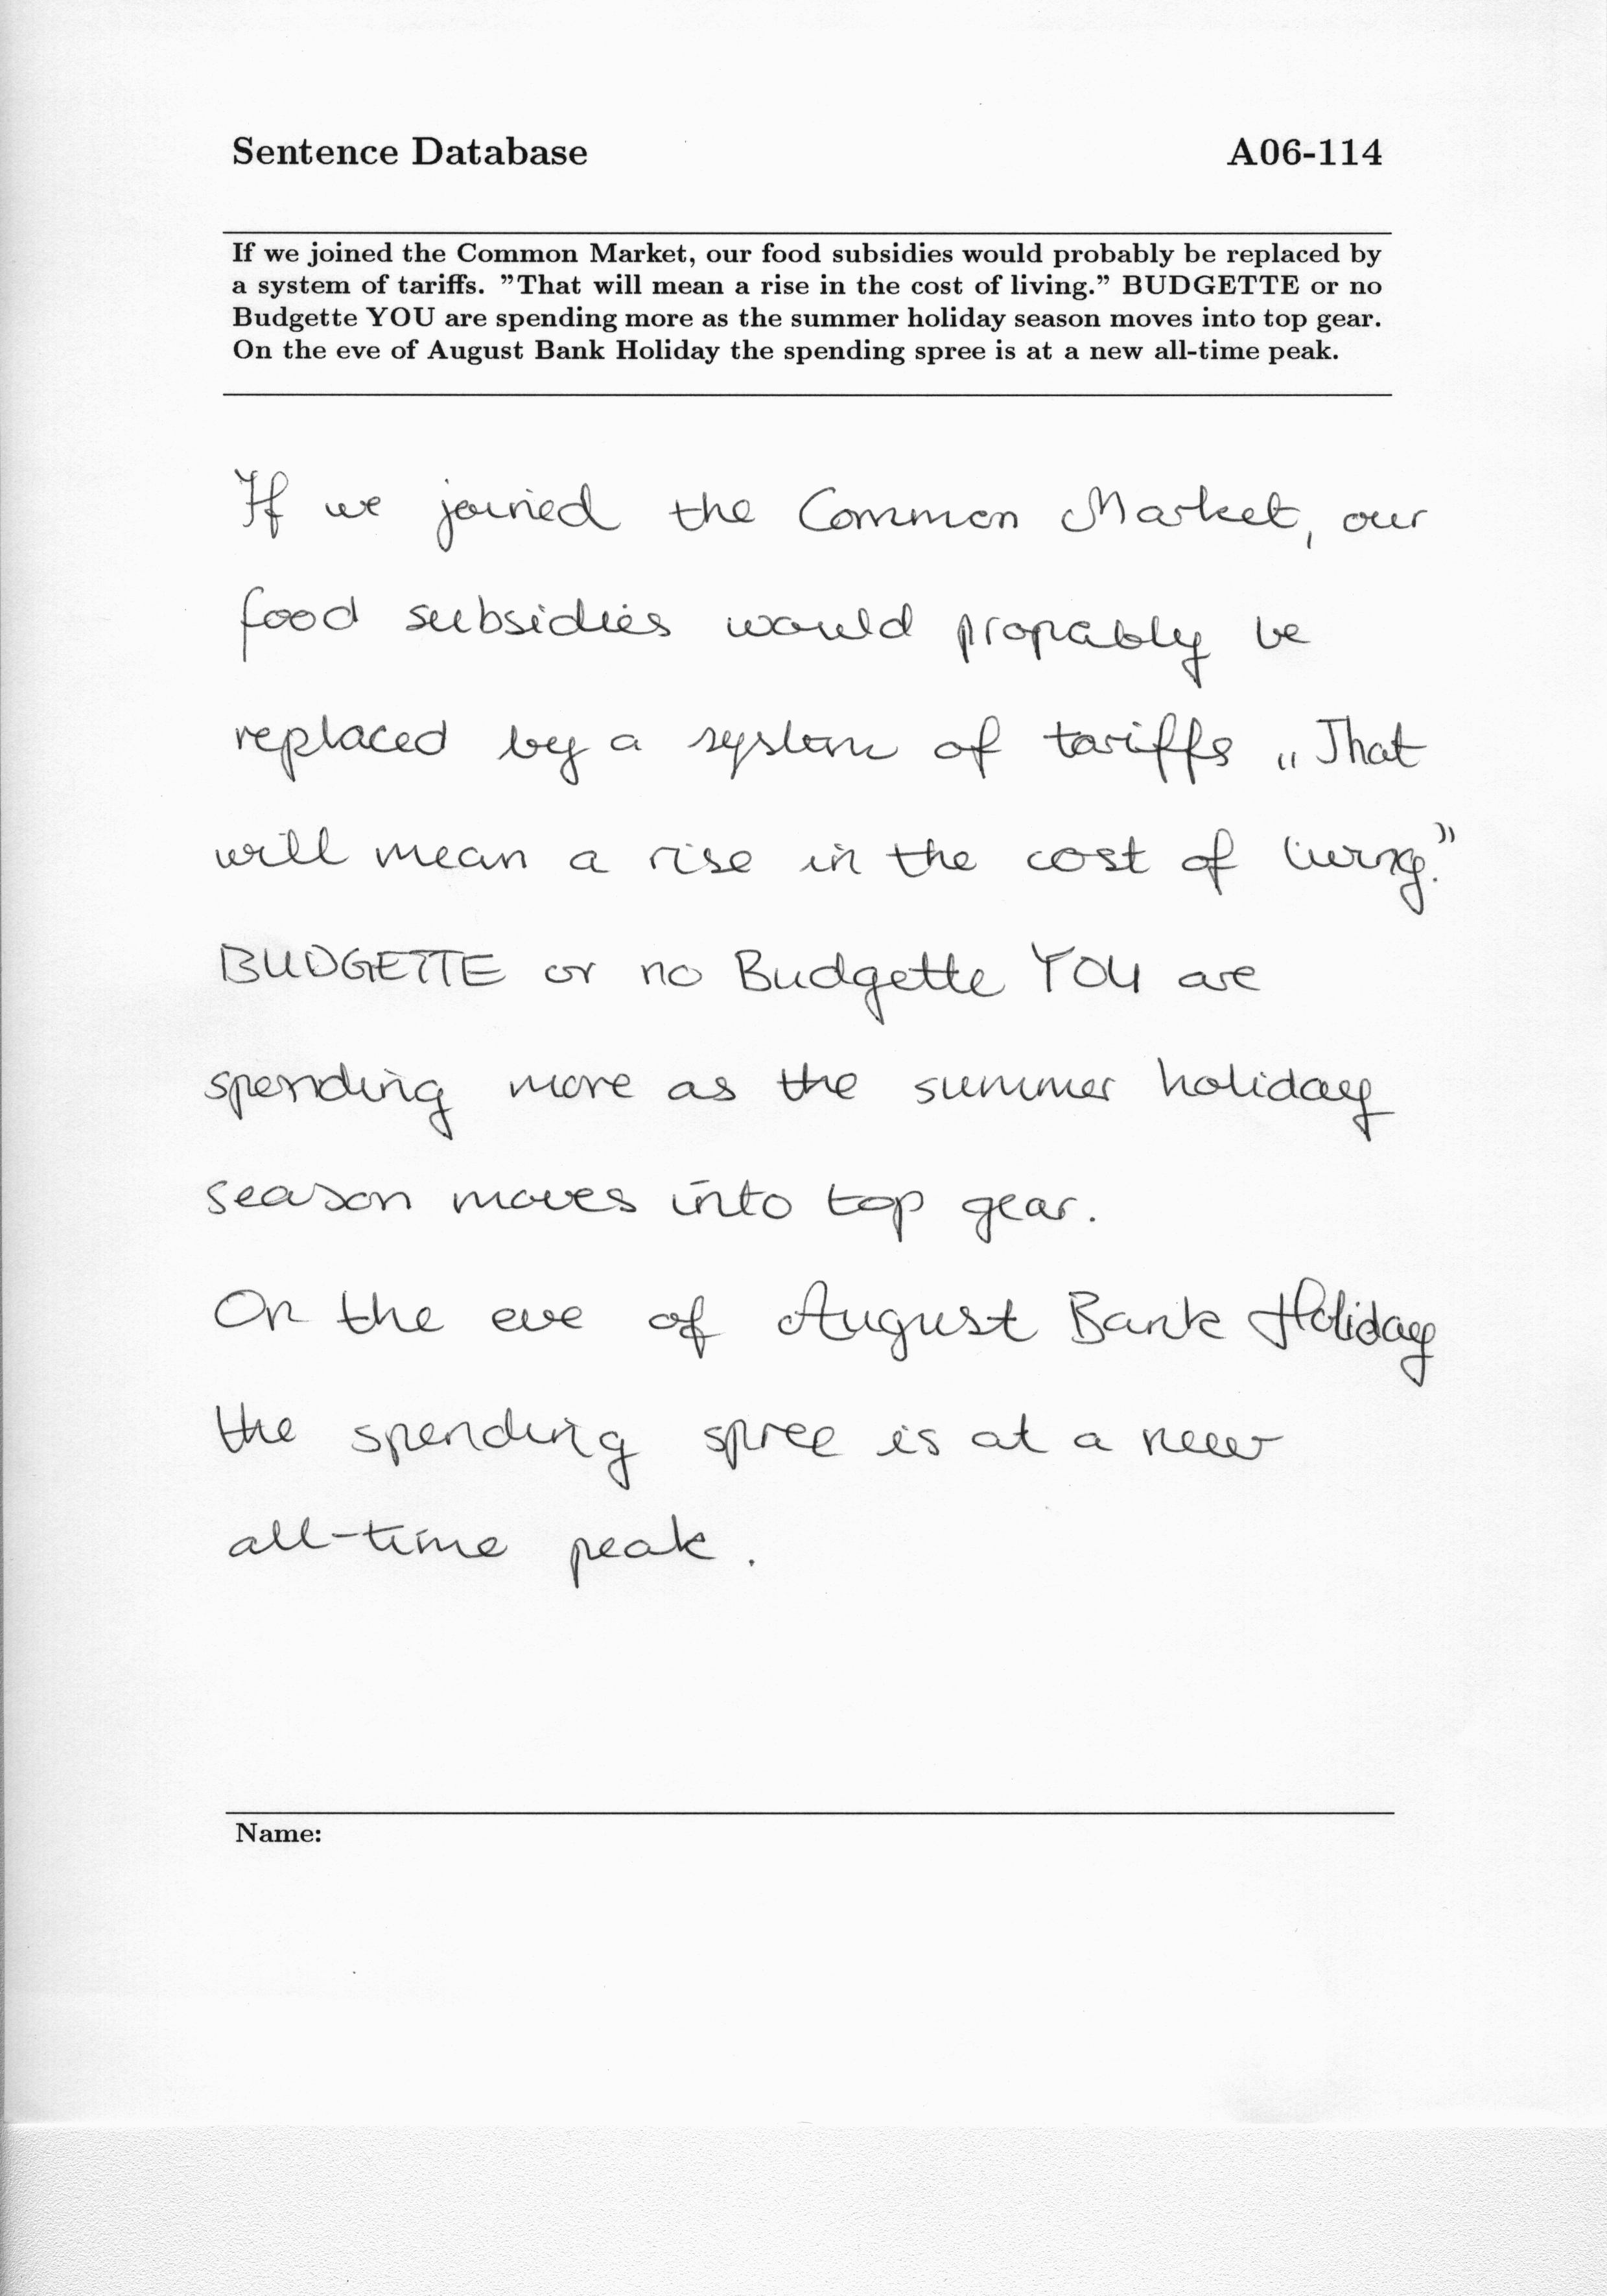 Sentence Database A06-114
If we joined the Common Market, our food subsidies would probably be replaced by
a system of tariffs. ”That will mean a rise in the cost of living.” BUDGETTE or no
Budgette YOU are spending more as the summer holiday season moves into top gear.
On the eve of August Bank Holiday the spending spree is at a new all-time peak.
If we joined the Common Market, our
food subsidies would propably be
replaced by a system of tariffs „That
will mean a rise in the cost of living.”
BUDGETTE or no Budgette YOU are
spending more as the summer holiday
season moves into top gear.
On the eve of August Bank Holiday
the spending spree is at a new
all-time peak.
Name: